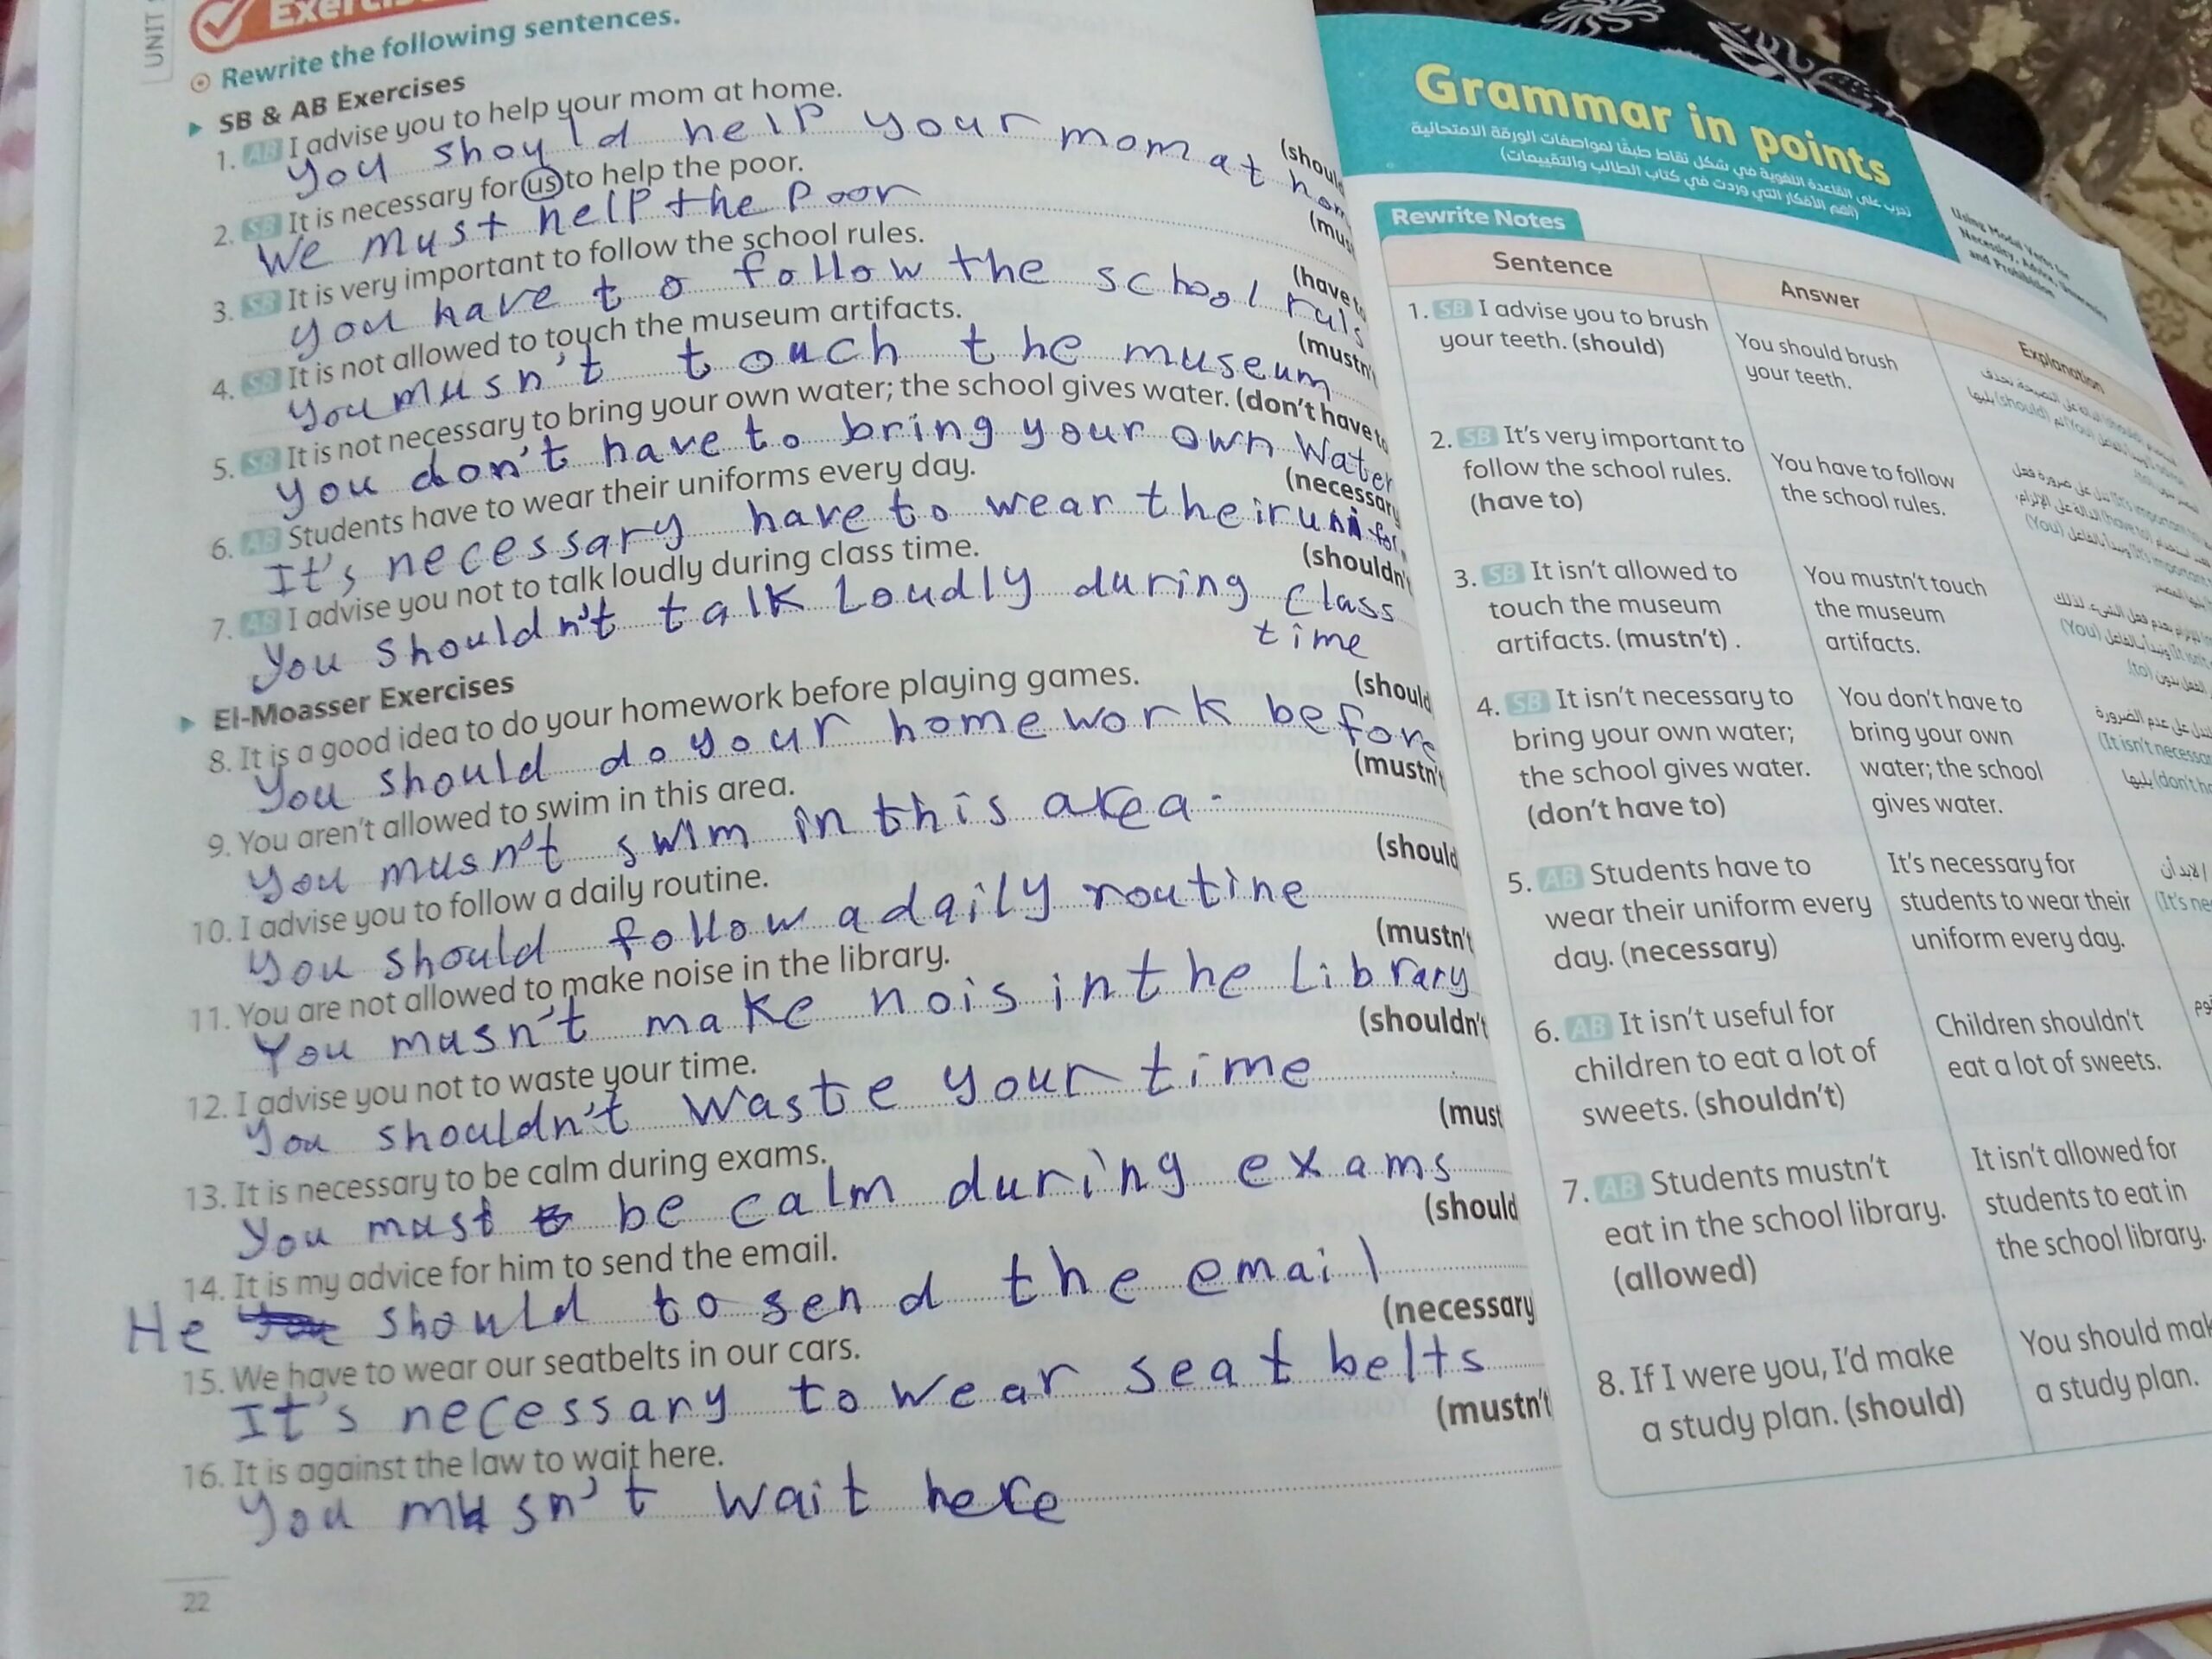 UNIT
Rewrite the following sentences.
SB & AB Exercises
1. AB I advise you to help your mom at home.
(should
you should help your mom at hom
2. SB It is necessary for us to help the poor.
(mus
We must help the poor
3. SB It is very important to follow the school rules.
(have to
you have to follow the school ruls
4. SB It is not allowed to touch the museum artifacts.
(mustn't
you musn't touch the museum
5. SB It is not necessary to bring your own water; the school gives water. (don't have to
you don't have to bring your own Water
6. AB Students have to wear their uniforms every day.
(necessary
It's necessary have to wear their unifor
7. AB I advise you not to talk loudly during class time.
(shouldn't
you shouldn't talk Loudly during class
time
El-Moasser Exercises
8. It is a good idea to do your homework before playing games.
(should
You should do your homework before
9. You aren't allowed to swim in this area.
(mustn't
you musn't swim in this area.
10. I advise you to follow a daily routine.
(should
you should follow a daily routine
11. You are not allowed to make noise in the library.
(mustn't
You musn't make nois in the Library
12. I advise you not to waste your time.
(shouldn't
you shouldn't waste your time
13. It is necessary to be calm during exams.
(must
you must be calm during exams
14. It is my advice for him to send the email.
(should
He should to send the email
15. We have to wear our seatbelts in our cars.
(necessary
It's necessary to wear seat belts
16. It is against the law to wait here.
(mustn't
you musn't wait here
22
Grammar in points
تدرب على القاعدة اللغوية في شكل نقاط طبقًا لمواصفات الورقة الامتحانية
(أهم الأفكار التي وردت في كتاب الطالب والتقييمات)
Using Modal Verbs for
Necessity, Advice,
and Prohibition
Rewrite Notes
Sentence
Answer
Explanation
1. SB I advise you to brush
your teeth. (should)
You should brush
your teeth.
2. SB It's very important to
follow the school rules.
(have to)
You have to follow
the school rules.
3. SB It isn't allowed to
touch the museum
artifacts. (mustn't) .
You mustn't touch
the museum
artifacts.
4. SB It isn't necessary to
bring your own water;
the school gives water.
(don't have to)
You don't have to
bring your own
water; the school
gives water.
5. AB Students have to
wear their uniform every
day. (necessary)
It's necessary for
students to wear their
uniform every day.
6. AB It isn't useful for
children to eat a lot of
sweets. (shouldn't)
Children shouldn't
eat a lot of sweets.
7. AB Students mustn't
eat in the school library.
(allowed)
It isn't allowed for
students to eat in
the school library.
8. If I were you, I'd make
a study plan. (should)
You should mak
a study plan.